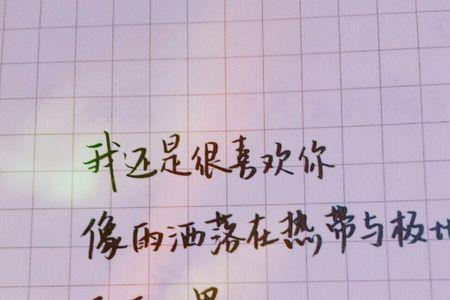 我还是很喜欢你
像雨洒落在热带与极地